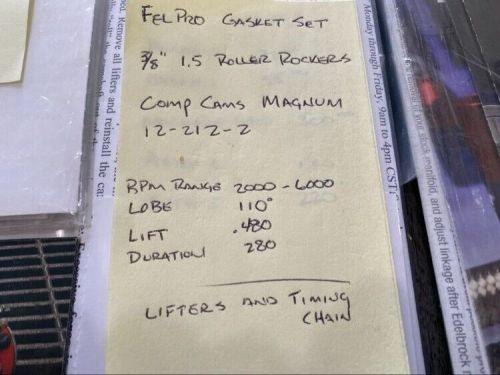 FELPRO GASKET SET
3/8" 1.5 ROLLER ROCKERS
COMP CAMS MAGNUM
12-212-2
RPM RANGE 2000-6000
LOBE 110°
LIFT .480
DURATION 280
LIFTERS AND TIMING
CHAIN
ed. Remove all lifters and reinstall the ca
Monday through Friday, 9am to 4pm CST
manifold, and adjust linkage after Edelbrock